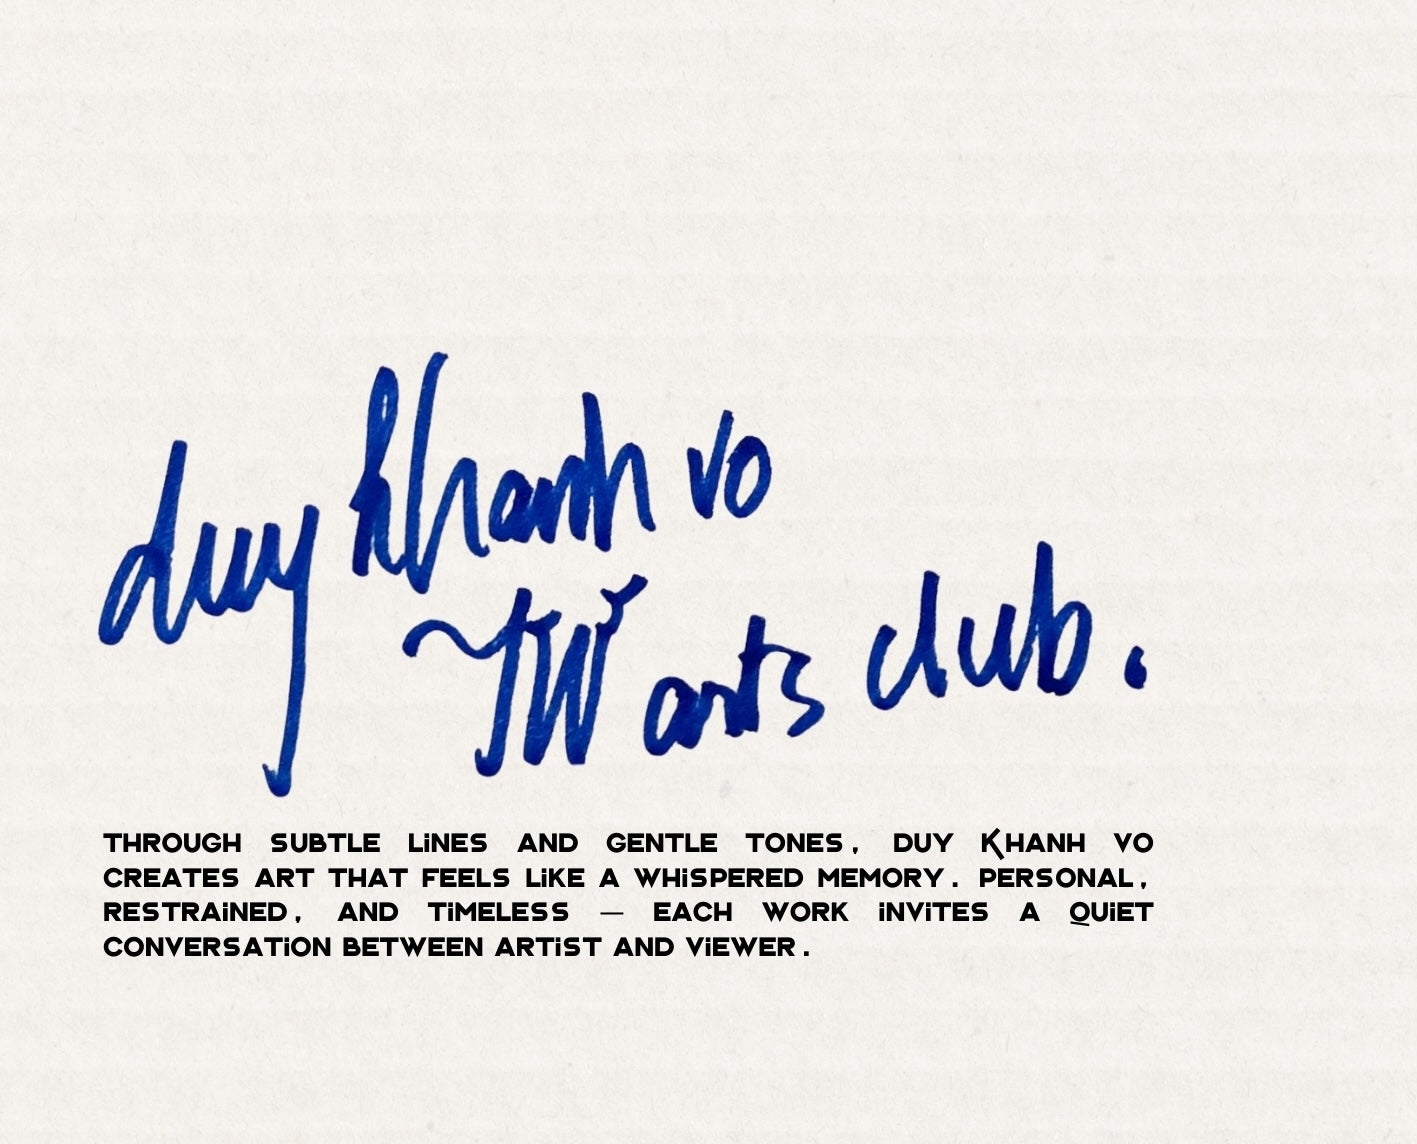 duy khanh vo
~TW arts club.
THROUGH SUBTLE LiNES AND GENTLE TONES, DUY KHANH VO
CREATES ART THAT FEELS LiKE A WHiSPERED MEMORY. PERSONAL,
RESTRAiNED, AND TiMELESS — EACH WORK iNViTES A QUiET
CONVERSATiON BETWEEN ARTiST AND ViEWER.